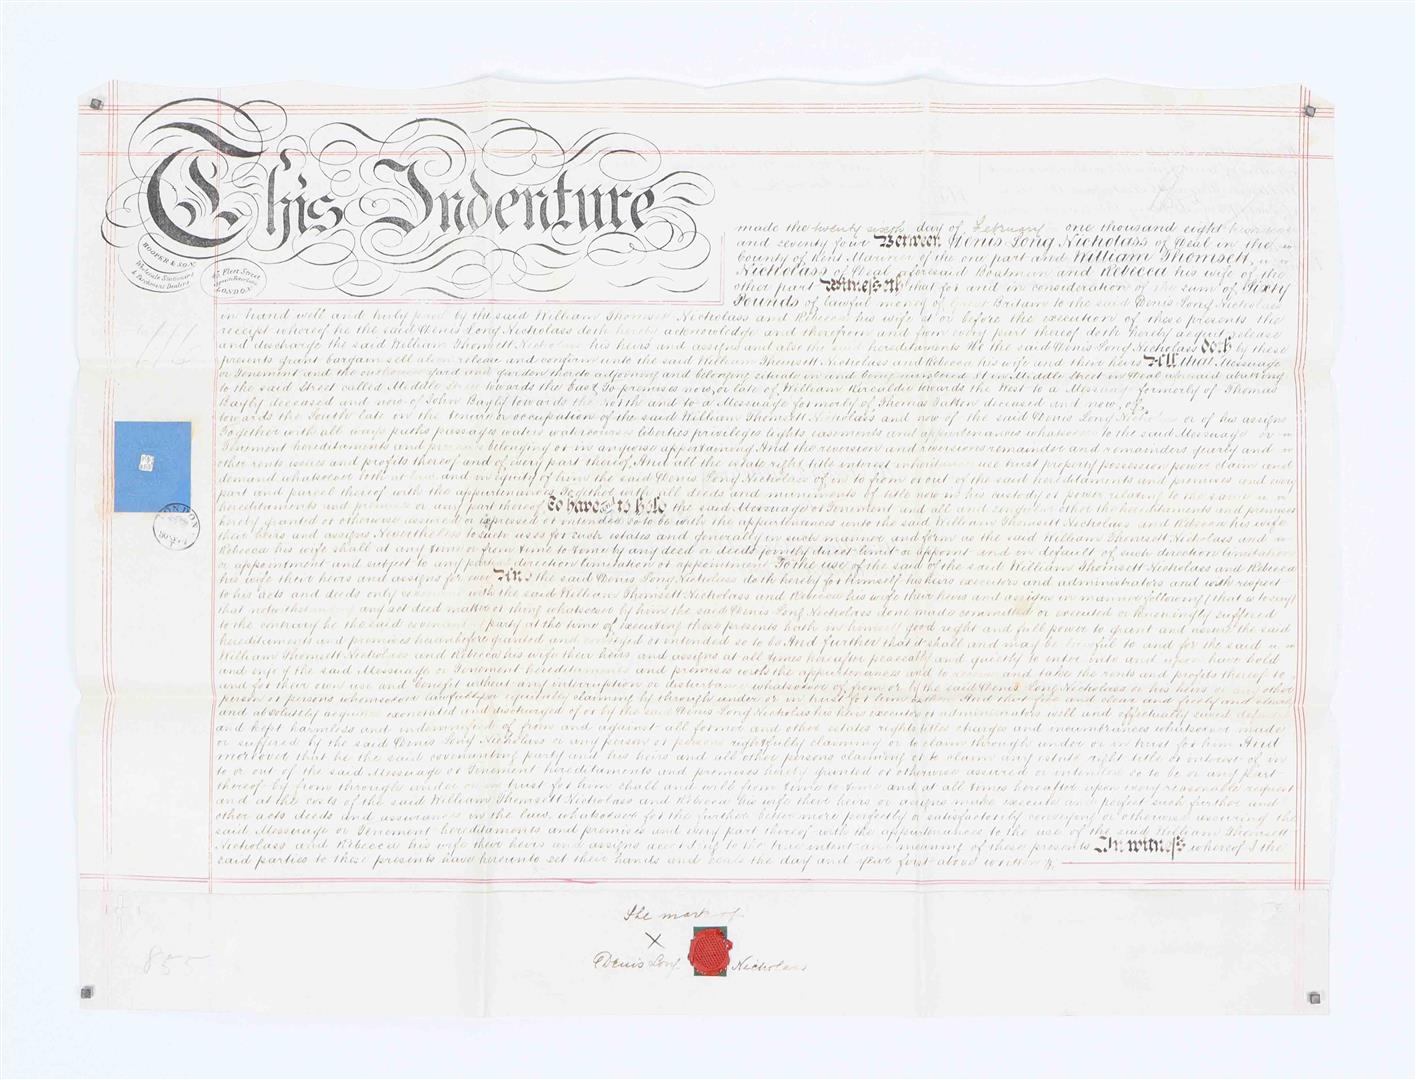 This Indenture
HOOPER & SON
Wholesale Stationers
& Parchment Dealers
45 Fleet Street
LONDON
made the twenty sixth day of February one thousand eight hundred
and seventy four Between Denis Long Nicholass of Deal in the
County of Kent Mariner of the one part and William Thomsett
Nicholass of Deal aforesaid Boatman and Rebecca his wife of the
other part Witnesseth that for and in consideration of the sum of Sixty
Pounds of lawful money of Great Britain to the said Denis Long Nicholass
in hand well and truly paid by the said William Thomsett Nicholass and Rebecca his wife at or before the execution of these presents the
receipt whereof he the said Denis Long Nicholass doth hereby acknowledge and therefrom and from every part thereof doth hereby acquit release
and discharge the said William Thomsett Nicholass his heirs and assigns and also the said hereditaments He the said Denis Long Nicholass Doth by these
presents grant bargain sell alien release and confirm unto the said William Thomsett Nicholass and Rebecca his wife and their heirs All that Messuage
or Tenement and the outhouses yard and garden thereto adjoining and belonging situate in and being numbered in Middle Street in Deal aforesaid abutting
to the said Street called Middle Street towards the East To premises now or late of William Kircaldie towards the West to a Messuage formerly of Thomas
Bayly deceased and now of John Bayly towards the North and to a Messuage formerly of Thomas Oatton deceased and now of
towards the South late in the tenure or occupation of the said William Thomsett Nicholass and now of the said Denis Long Nicholass or of his assigns
Together with all ways paths passages waters watercourses liberties privileges lights easements and appurtenances whatsoever to the said Messuage or
Tenement hereditaments and premises belonging or in anywise appertaining And the reversion and reversions remainder and remainders yearly and
other rents issues and profits thereof and of every part thereof And all the estate right title interest inheritance use trust property possession power claim and
demand whatsoever both at law and in equity of him the said Denis Long Nicholass of in to from or out of the said hereditaments and premises and every
part and parcel thereof with the appurtenances Together with all deeds and muniments of title now in his custody or power relating to the same
hereditaments and premises or any part thereof To have and to hold the said Messuage or Tenement and all and singular other the hereditaments and premises
hereby granted or otherwise assured or expressed or intended so to be with the appurtenances unto the said William Thomsett Nicholass and Rebecca his wife
their heirs and assigns Nevertheless to such uses for such estates and generally in such manner and form as the said William Thomsett Nicholass and
Rebecca his wife shall at any time or from time to time by any deed or deeds jointly direct limit or appoint and in default of such direction limitation
or appointment and subject to any part direction limitation or appointment To the use of the said of the said William Thomsett Nicholass and Rebecca
his wife their heirs and assigns for ever And the said Denis Long Nicholass doth hereby for himself his heirs executors and administrators and with respect
to his acts and deeds only covenant with the said William Thomsett Nicholass and Rebecca his wife their heirs and assigns in manner following (that is to say)
that notwithstanding any act deed matter or thing whatsoever by him the said Denis Long Nicholass done made committed or executed or knowingly suffered
to the contrary he the said covenanting party at the time of executing these presents hath in himself good right and full power to grant and assure the said
hereditaments and premises hereinbefore granted and expressed or intended so to be And further that it shall and may be lawful to and for the said
William Thomsett Nicholass and Rebecca his wife their heirs and assigns at all times hereafter peaceably and quietly to enter into and upon have hold
and enjoy the said Messuage or Tenement hereditaments and premises with the appurtenances and to receive and take the rents and profits thereof to
and for their own use and benefit without any interruption or disturbance whatsoever of from or by the said Denis Long Nicholass or his heirs or any other
person or persons whomsoever lawfully or equitably claiming by through under or in trust for him or them And that free and clear and freely and clearly
and absolutely acquitted exonerated and discharged of or by the said Denis Long Nicholass his heirs executors or administrators well and effectually saved defended
and kept harmless and indemnified of from and against all former and other estates rights titles charges and incumbrances whatsoever made
or suffered by the said Denis Long Nicholass or any person or persons rightfully claiming or to claim through under or in trust for him And
moreover that he the said covenanting party and his heirs and all other persons claiming or to claim any estate right title or interest of in
to or out of the said Messuage or Tenement hereditaments and premises hereby granted or otherwise assured or intended so to be or any part
thereof by from through under or in trust for him shall and will from time to time and at all times hereafter upon every reasonable request
and at the costs of the said William Thomsett Nicholass and Rebecca his wife their heirs or assigns make execute and perfect such further and
other acts deeds and assurances in the law whatsoever for the further better more perfectly or satisfactorily conveying or otherwise assuring the
said Messuage or Tenement hereditaments and premises and every part thereof with the appurtenances to the use of the said William Thomsett
Nicholass and Rebecca his wife their heirs and assigns according to the true intent and meaning of these presents In witness whereof the
said parties to these presents have hereunto set their hands and seals the day and year first above written
LONDON
The mark of
X
Denis Long Nicholass
855